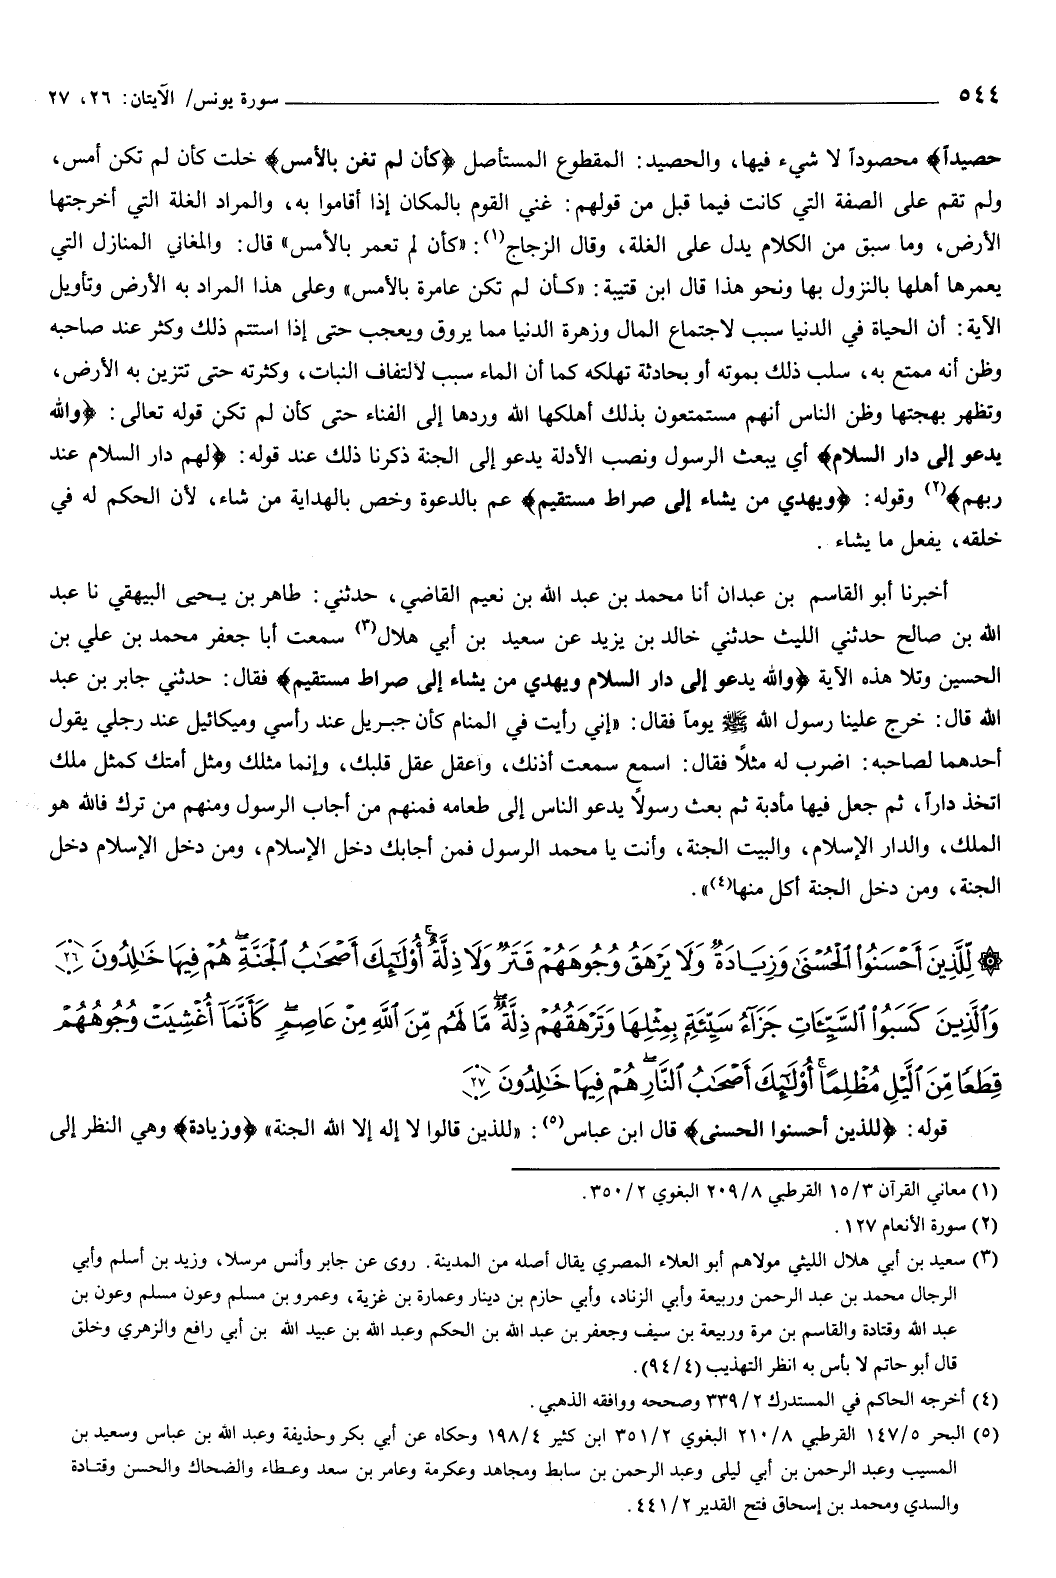 ٥٤٤ سورة يونس/ الآيتان: ٢٦، ٢٧
حصيداً﴾ محصوداً لا شيء فيها، والحصيد: المقطوع المستأصل ﴿كأن لم تغن بالأمس﴾ خلت كأن لم تكن أمس،
ولم تقم على الصفة التي كانت فيما قبل من قولهم: غني القوم بالمكان إذا أقاموا به، والمراد الغلة التي أخرجتها
الأرض، وما سبق من الكلام يدل على الغلة، وقال الزجاج(١): «كأن لم تعمر بالأمس» قال: والمغاني المنازل التي
يعمرها أهلها بالنزول بها ونحو هذا قال ابن قتيبة: «كأن لم تكن عامرة بالأمس» وعلى هذا المراد به الأرض وتأويل
الآية: أن الحياة في الدنيا سبب لاجتماع المال وزهرة الدنيا مما يروق ويعجب حتى إذا استتم ذلك وكثر عند صاحبه
وظن أنه ممتع به، سلب ذلك بموته أو بحادثة تهلكه كما أن الماء سبب لالتفاف النبات، وكثرته حتى تتزين به الأرض،
وتظهر بهجتها وظن الناس أنهم مستمتعون بذلك أهلكها الله وردها إلى الفناء حتى كأن لم تكن قوله تعالى: ﴿والله
يدعو إلى دار السلام﴾ أي يبعث الرسول ونصب الأدلة يدعو إلى الجنة ذكرنا ذلك عند قوله: ﴿لهم دار السلام عند
ربهم﴾(٢) وقوله: ﴿ويهدي من يشاء إلى صراط مستقيم﴾ عم بالدعوة وخص بالهداية من شاء، لأن الحكم له في
خلقه، يفعل ما يشاء.
أخبرنا أبو القاسم بن عبدان أنا محمد بن عبد الله بن نعيم القاضي، حدثني: طاهر بن يحيى البيهقي نا عبد
الله بن صالح حدثني الليث حدثني خالد بن يزيد عن سعيد بن أبي هلال(٣) سمعت أبا جعفر محمد بن علي بن
الحسين وتلا هذه الآية ﴿والله يدعو إلى دار السلام ويهدي من يشاء إلى صراط مستقيم﴾ فقال: حدثني جابر بن عبد
الله قال: خرج علينا رسول الله ﷺ يوماً فقال: «إني رأيت في المنام كأن جبريل عند رأسي وميكائيل عند رجلي يقول
أحدهما لصاحبه: اضرب له مثلاً فقال: اسمع سمعت أذنك، واعقل عقل قلبك، وإنما مثلك ومثل أمتك كمثل ملك
اتخذ داراً، ثم جعل فيها مأدبة ثم بعث رسولاً يدعو الناس إلى طعامه فمنهم من أجاب الرسول ومنهم من ترك فالله هو
الملك، والدار الإسلام، والبيت الجنة، وأنت يا محمد الرسول فمن أجابك دخل الإسلام، ومن دخل الإسلام دخل
الجنة، ومن دخل الجنة أكل منها(٤)».
۞ لِّلَّذِينَ أَحْسَنُوا۟ الْحُسْنَىٰ وَزِيَادَةٌ ۖ وَلَا يَرْهَقُ وُجُوهَهُمْ قَتَرٌ وَلَا ذِلَّةٌ ۚ أُو۟لَٰٓئِكَ أَصْحَٰبُ الْجَنَّةِ ۖ هُمْ فِيهَا خَٰلِدُونَ ﴿٢٦﴾
وَالَّذِينَ كَسَبُوا۟ السَّيِّـَٔاتِ جَزَآءُ سَيِّئَةٍ بِمِثْلِهَا وَتَرْهَقُهُمْ ذِلَّةٌ ۖ مَّا لَهُم مِّنَ اللَّهِ مِنْ عَاصِمٍ ۖ كَأَنَّمَآ أُغْشِيَتْ وُجُوهُهُمْ
قِطَعًا مِّنَ الَّيْلِ مُظْلِمًا ۚ أُو۟لَٰٓئِكَ أَصْحَٰبُ النَّارِ ۖ هُمْ فِيهَا خَٰلِدُونَ ﴿٢٧﴾
قوله: ﴿للذين أحسنوا الحسنى﴾ قال ابن عباس(٥): «للذين قالوا لا إله إلا الله الجنة» ﴿وزيادة﴾ وهي النظر إلى
(١) معاني القرآن ١٥/٣ القرطبي ٢٠٩/٨ البغوي ٣٥٠/٢.
(٢) سورة الأنعام ١٢٧.
(٣) سعيد بن أبي هلال الليثي مولاهم أبو العلاء المصري يقال أصله من المدينة. روى عن جابر وأنس مرسلا، وزيد بن أسلم وأبي
الرجال محمد بن عبد الرحمن وربيعة وأبي الزناد، وأبي حازم بن دينار وعمارة بن غزية، وعمرو بن مسلم وعون مسلم وعون بن
عبد الله وقتادة والقاسم بن مرة وربيعة بن سيف وجعفر بن عبد الله بن الحكم وعبد الله بن عبيد الله بن أبي رافع والزهري وخلق
قال أبو حاتم لا بأس به انظر التهذيب (٩٤/٤).
(٤) أخرجه الحاكم في المستدرك ٣٣٩/٢ وصححه ووافقه الذهبي.
(٥) البحر ١٤٧/٥ القرطبي ٢١٠/٨ البغوي ٣٥١/٢ ابن كثير ١٩٨/٤ وحكاه عن أبي بكر وحذيفة وعبد الله بن عباس وسعيد بن
المسيب وعبد الرحمن بن أبي ليلى وعبد الرحمن بن سابط ومجاهد وعكرمة وعامر بن سعد وعطاء والضحاك والحسن وقتادة
والسدي ومحمد بن إسحاق فتح القدير ٤٤١/٢.